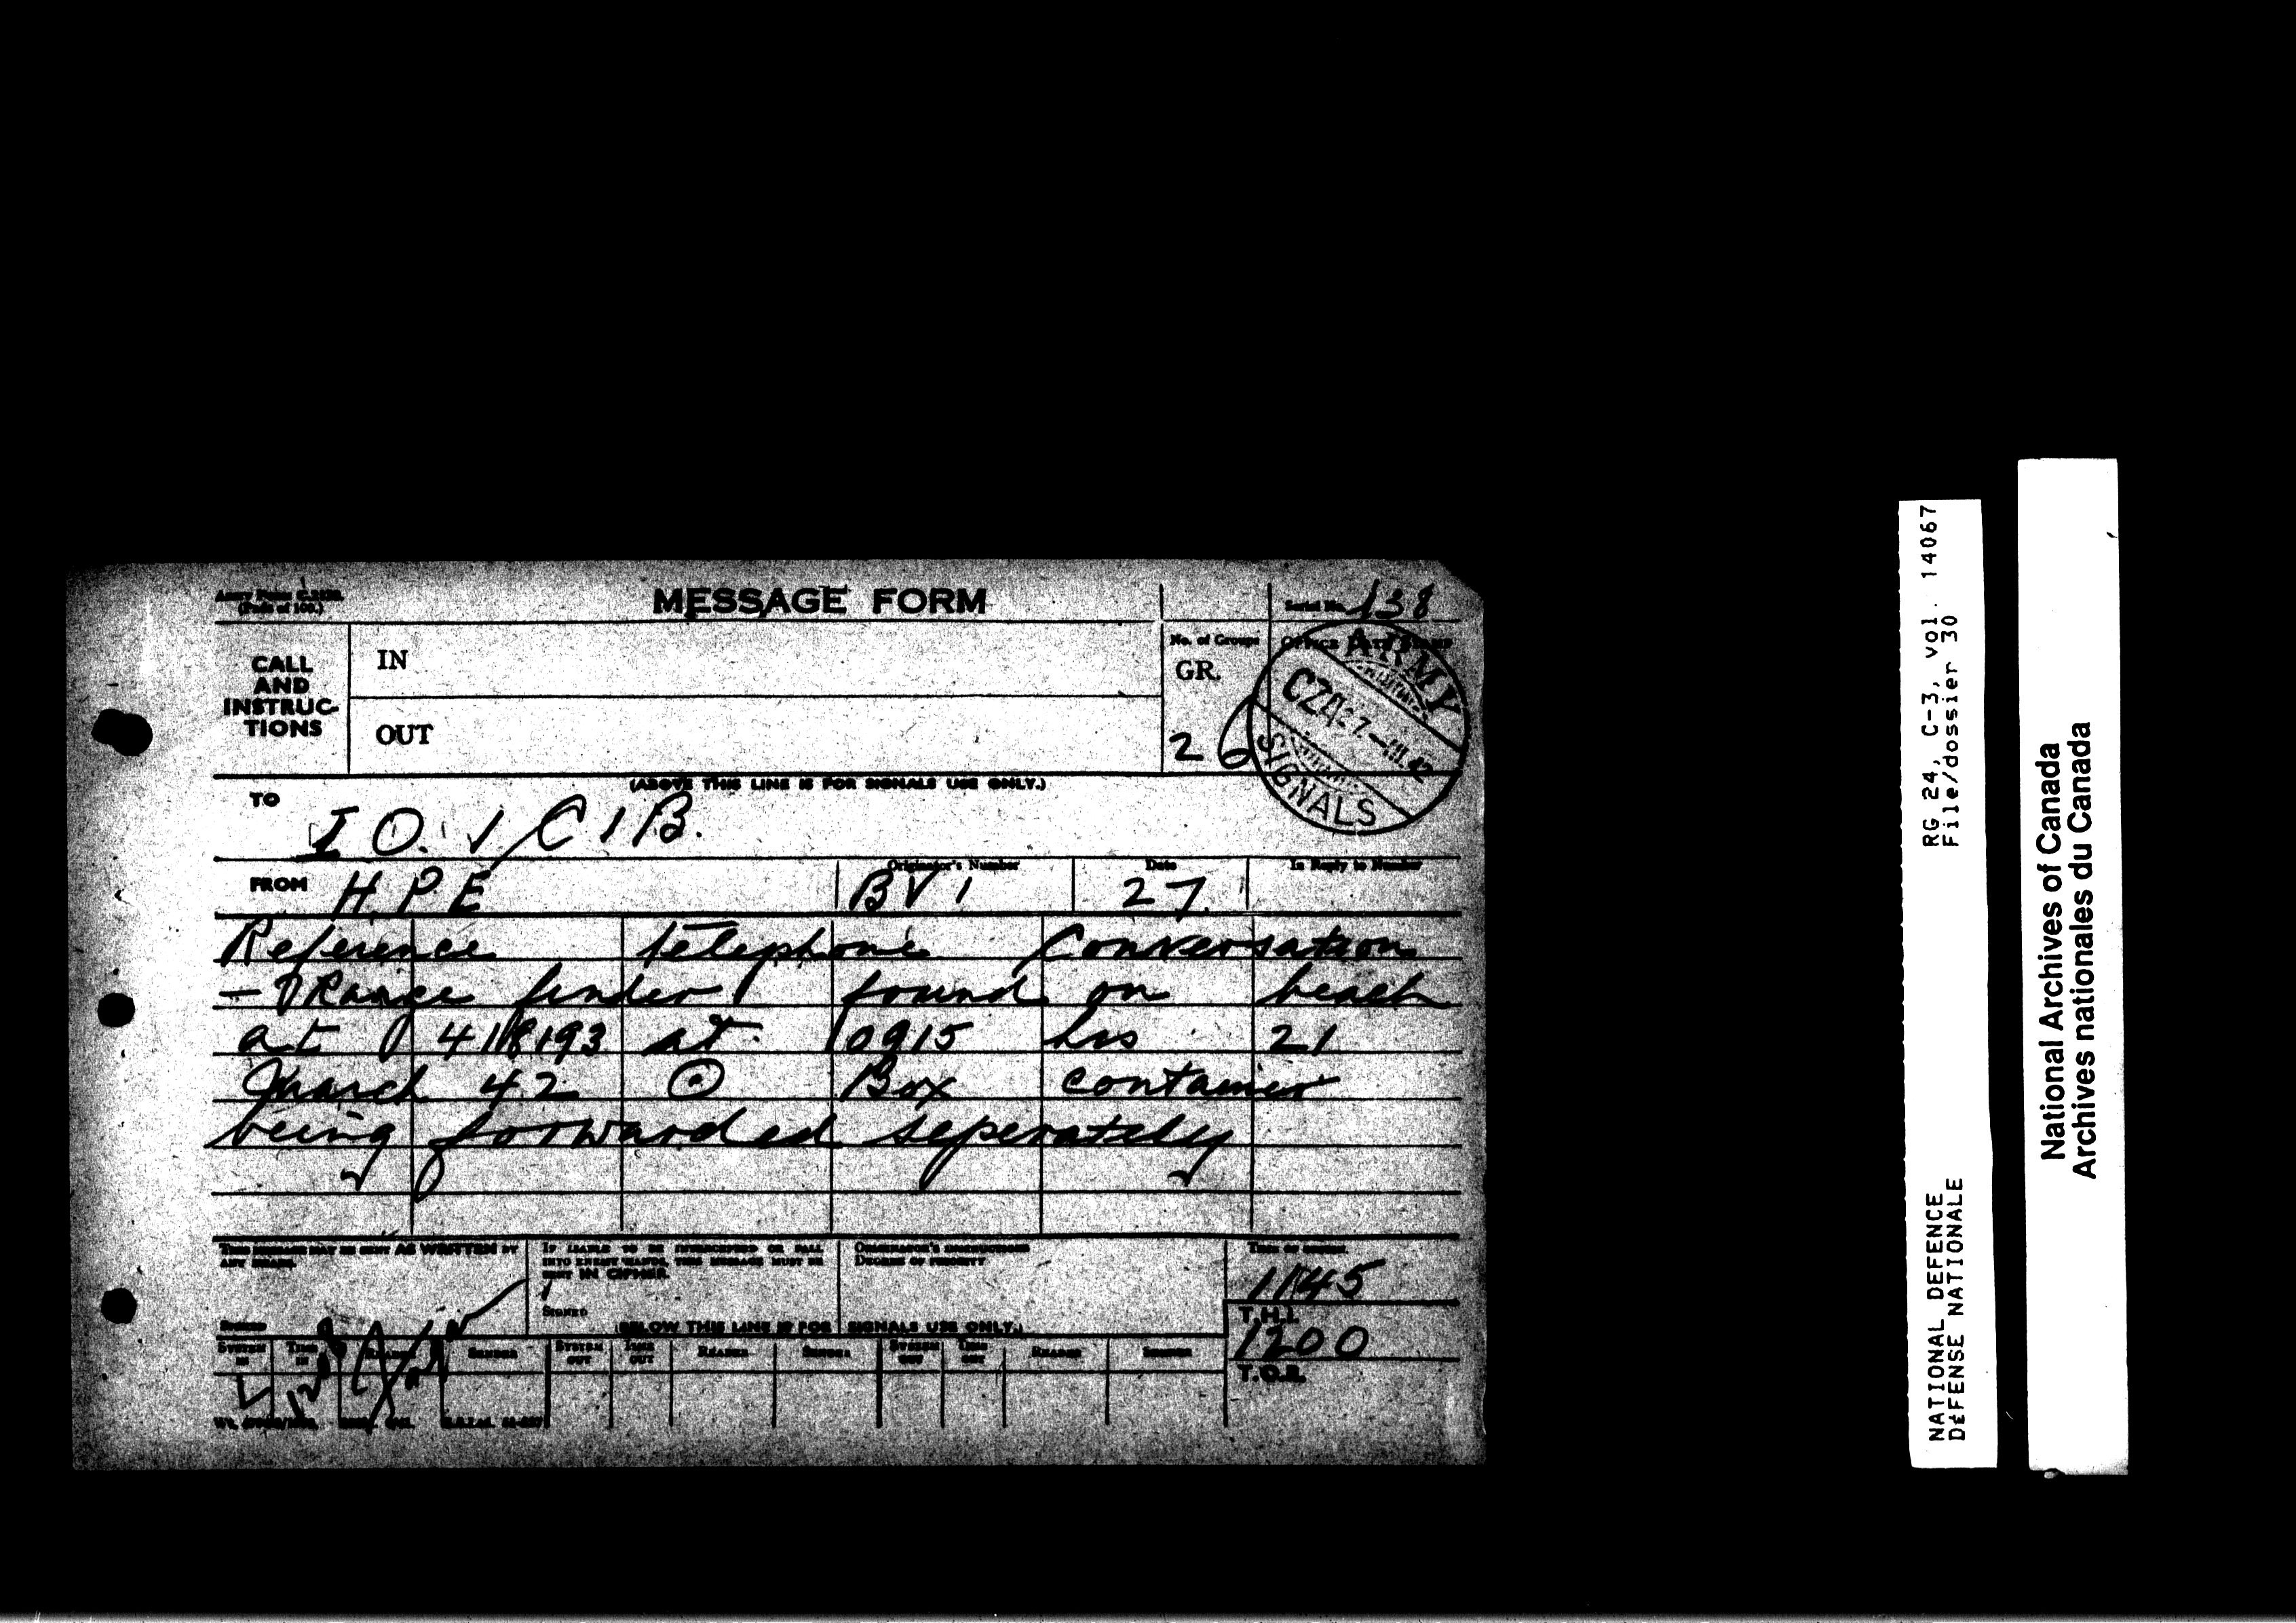 MESSAGE FORM
Army Form C.2128.
(Pads of 100.)
Serial No. 138
CALL
AND
INSTRUC-
TIONS
IN
OUT
No. of Groups
GR.
26
ARMY
SIGNALS
(ABOVE THIS LINE IS FOR SIGNALS USE ONLY.)
TO
I O. 1/C I B.
FROM H P E
Originator's Number
BV 1
Date
27
In Reply to Number
Reference telephone conversation
– Range finder found on beach
at 418193 at 0915 hrs 21
March 42 ⊙ Box container
being forwarded seperately
THIS MESSAGE MAY BE SENT AS WRITTEN BY
ANY MEANS.
IF LIABLE TO BE INTERCEPTED OR FALL
INTO ENEMY HANDS, THIS MESSAGE MUST BE
SENT IN CIPHER.
SIGNED
ORIGINATOR'S INSTRUCTIONS
DEGREE OF PRIORITY
TIME OF ORIGIN.
1145
T.H.I.
1200
T.O.R.
SIGNED
(BELOW THIS LINE IS FOR SIGNALS USE ONLY.)
SYSTEM IN
TIME IN
READER
SENDER
SYSTEM OUT
TIME OUT
READER
SENDER
SYSTEM OUT
TIME OUT
READER
SENDER
RG 24, C-3, vol. 14067
File/dossier 30
NATIONAL DEFENCE
DÉFENSE NATIONALE
National Archives of Canada
Archives nationales du Canada